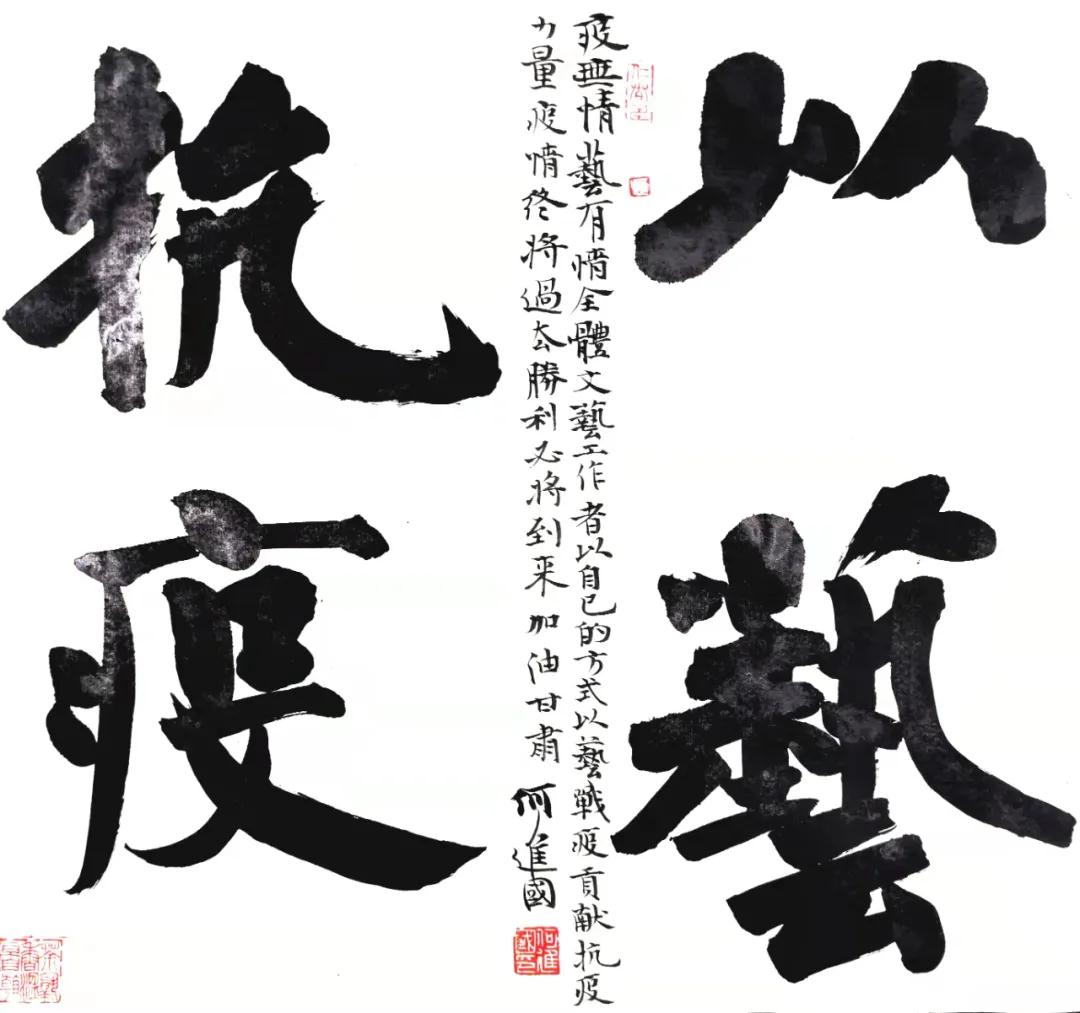 以藝
抗疫
疫無情藝有情全體文藝工作者以自己的方式以藝戰疫貢献抗疫
力量疫情终将過去勝利必将到来加油甘肅
何進國
何進國印